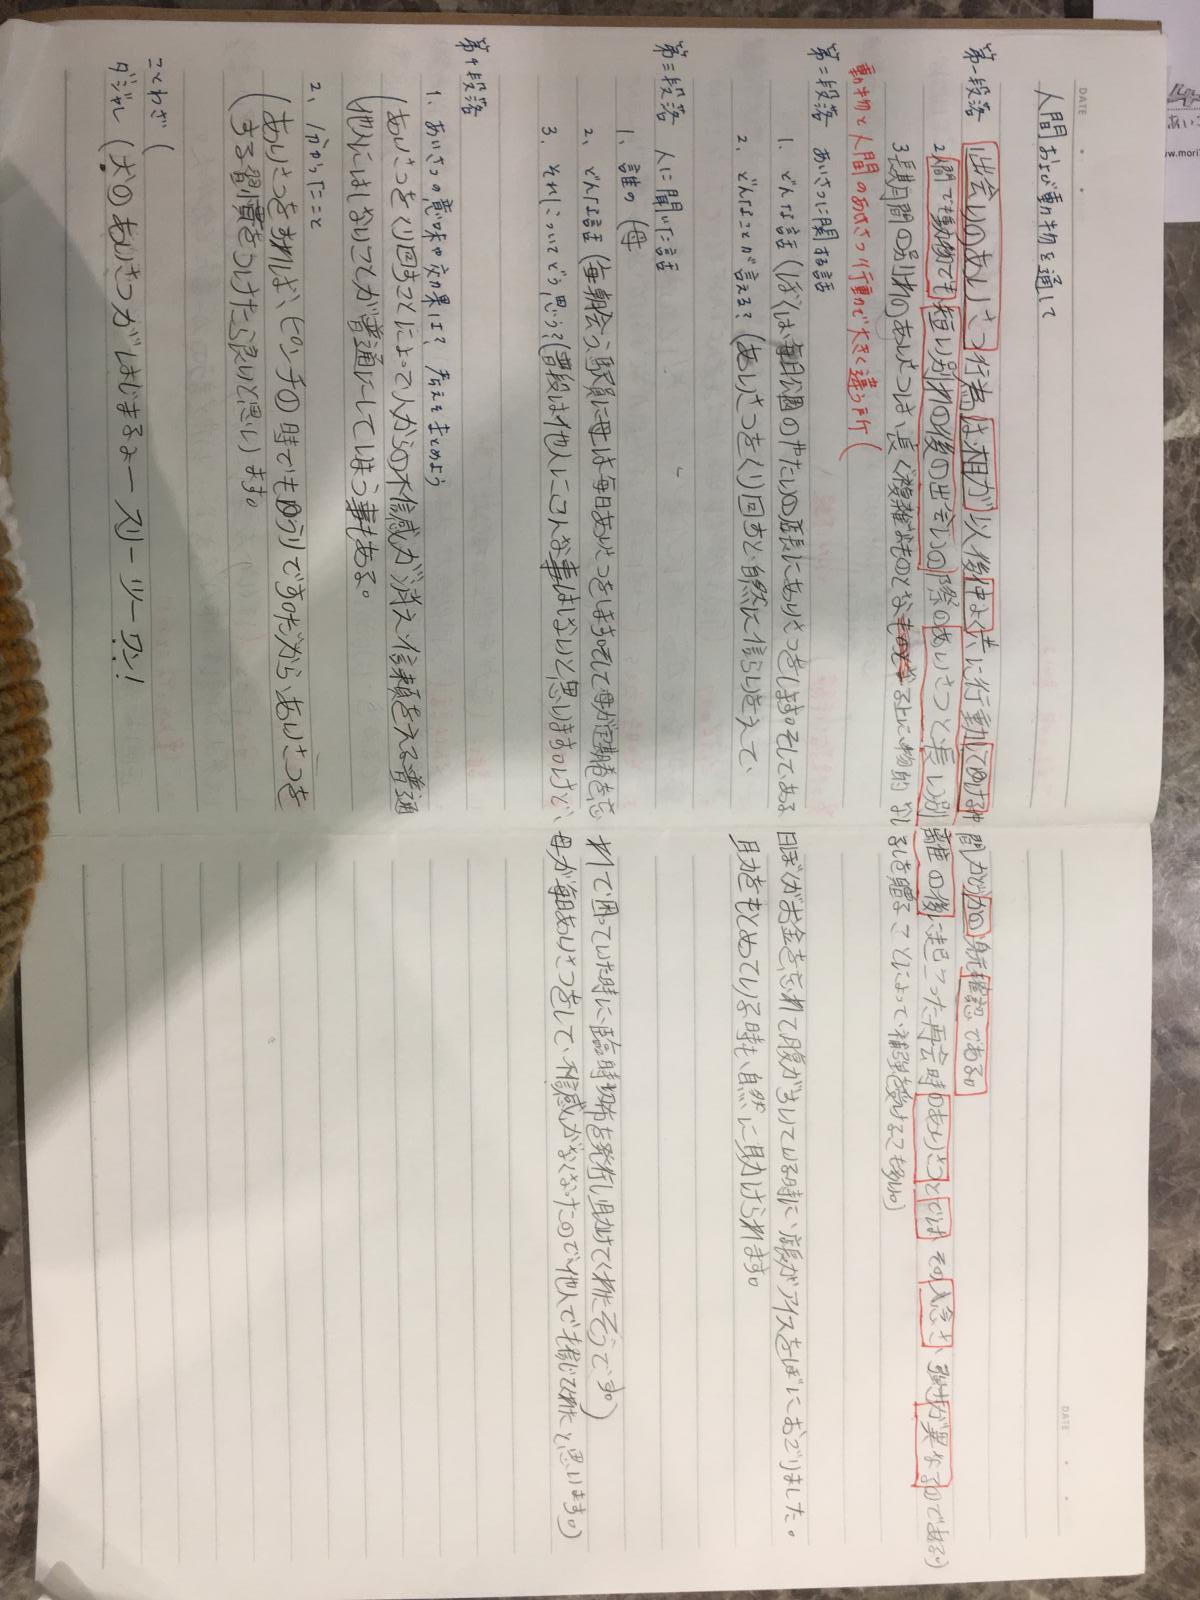 DATE
人間および動物を通して
第一段落 1出会いのあいさつ行為は相方が以後仲よく共に行動してゆける仲間かどうかの身元確認である。
2人間でも動物でも短い別れの後の出会いの際のあいさつと長い別離の後に起こった再会時のあいさつとではその入念さ、強さが異なるのである)
3長期間の別れのあいさつは長く複雑なものとなる上に物的なしるしを贈ることによって補強を受けることも多い。)
動物と人間のあいさつ行動で大きく違う所(
第二段落 あいさつに関する話
1. どんな話(ぼくは毎日公園のやたいの店長にあいさつをします。そしてある日ぼくがお金を忘れて腹がすいている時に、店長がアイスをぼくにおごりました。
2. どんなことが言える?(あいさつをくり回すと、自然に信らいをえて、助けをもとめている時も、自然に助けられます。
第三段落 人に聞いた話
1. 誰の(母
2. どんな話(毎朝会う駅員に母は毎日あいさつをします。そして母が定期券を忘れて困っていた時に、臨時切符を発行し助けてくれたそうです。)
3. それについてどう思う?(普段は他人にこんな事はしないと思いますのけど、母が毎日あいさつをして、不信感がなくなったので他人でも信じてくれたと思います。)
第四段落
1. あいさつの意味や効果は? 考えをまとめよう
(あいさつをくり回すことによって人からの不信感が消え、信頼をえる普通他人にはしないことが普通にしてしまう事もある。
2. 分かったこと
(あいさつをすれば、ピンチの時でもゆうりですのだからあいさつをする習慣をつけたら良いと思います。
ことわざ(
ダジャレ(犬のあいさつがはじまるよー スリー ツー ワン!
DATE